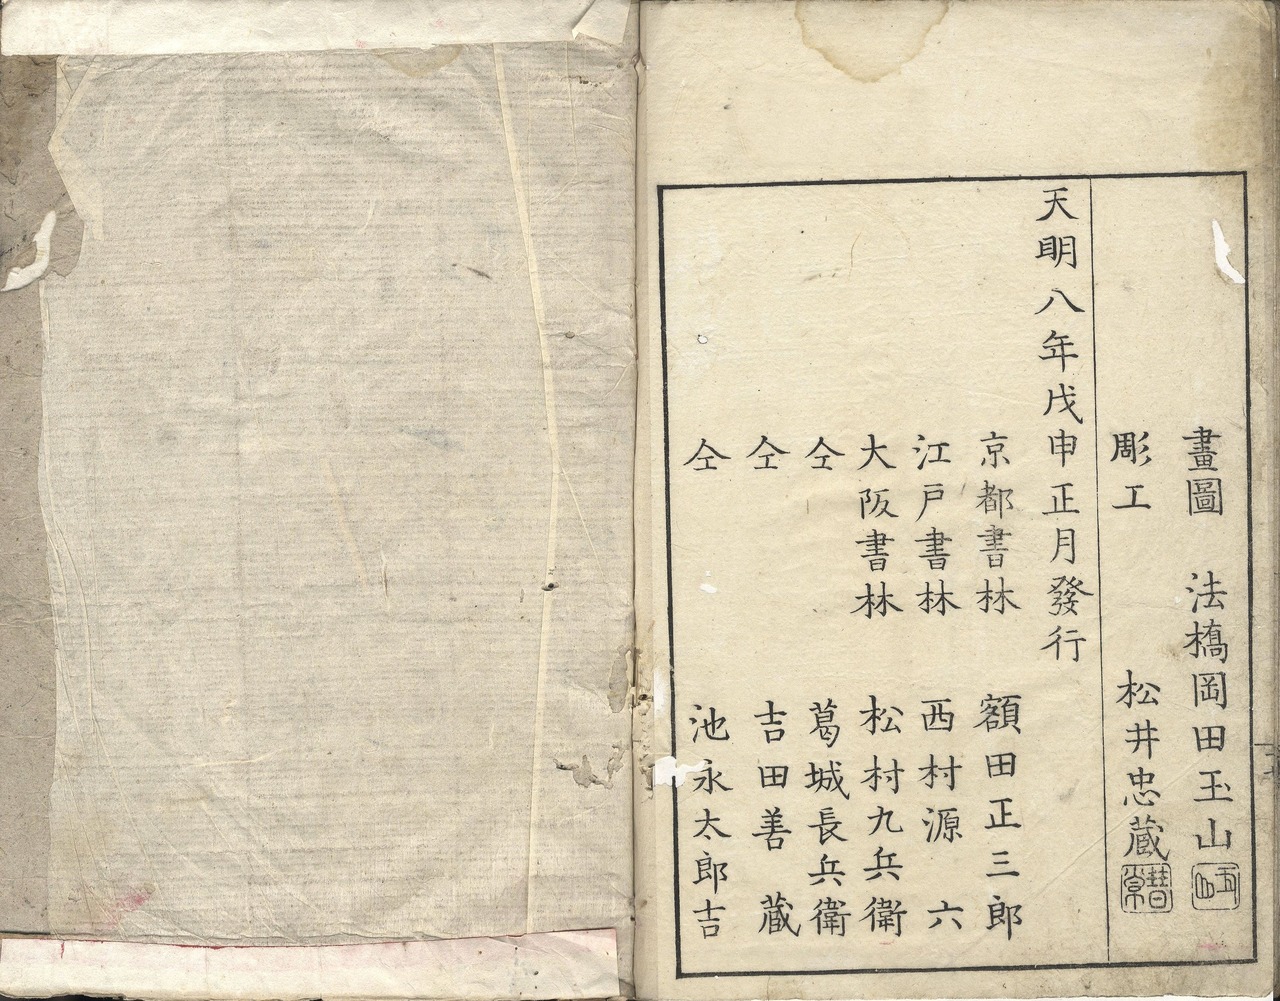 畫圖 法橋岡田玉山
彫工 松井忠蔵
天明八年戊申正月發行
京都書林 額田正三郎
江戸書林 西村源六
大阪書林 松村九兵衛
仝 葛城長兵衛
仝 吉田善蔵
仝 池永太郎吉